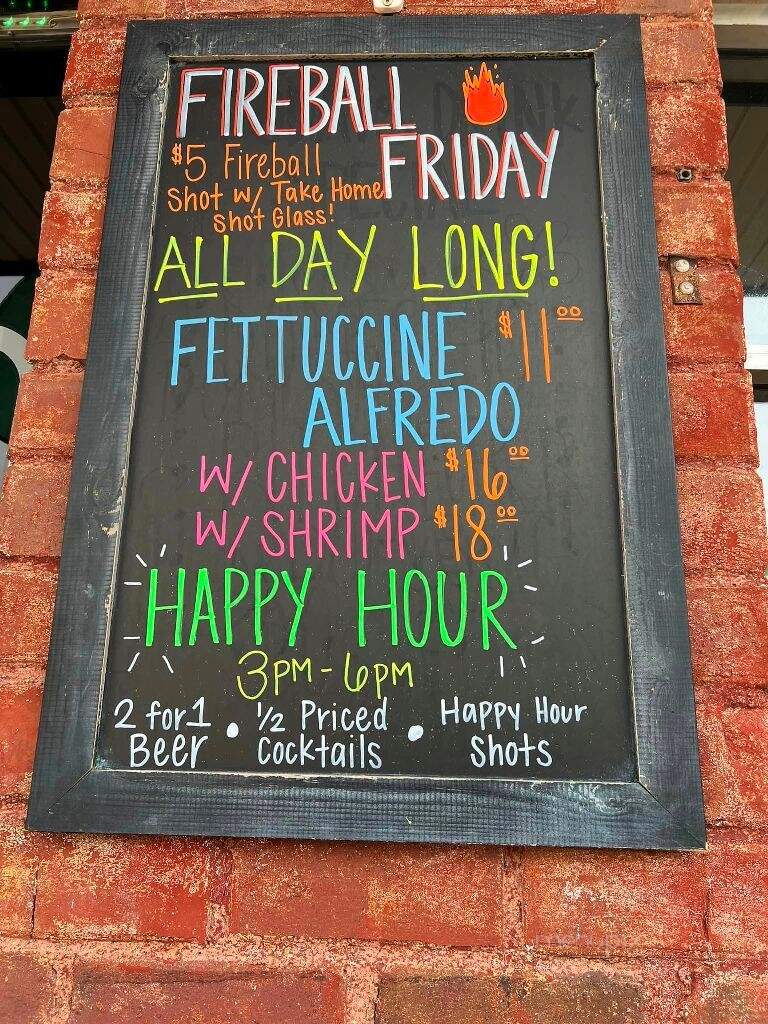 FIREBALL
FRIDAY
$5 Fireball
Shot w/ Take Home
Shot Glass!
ALL DAY LONG!
FETTUCCINE $11.00
ALFREDO
W/ CHICKEN $16.00
W/ SHRIMP $18.00
HAPPY HOUR
3PM - 6PM
2 for 1 • 1/2 Priced • Happy Hour
Beer Cocktails Shots